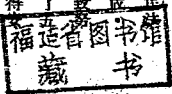 福建省图书馆
藏 书